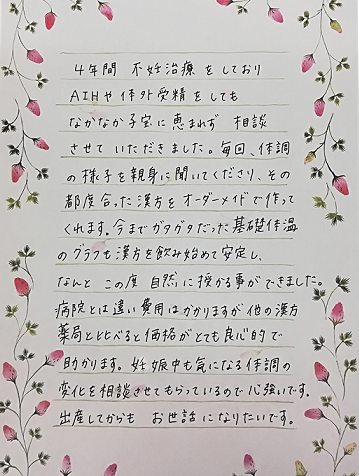 4年間 不妊治療をしており
AIHや体外受精をしても
なかなか子宝に恵まれず 相談
させていただきました。毎回、体調
の様子を親身に聞いてくださり、その
都度合った漢方をオーダーメイドで作って
くれます。今までガタガタだった基礎体温
のグラフも漢方を飲み始めて安定し、
なんと この度 自然に授かる事ができました。
病院とは違い費用はかかりますが他の漢方
薬局と比べると価格がとても良心的で
助かります。妊娠中も気になる体調の
変化を相談させてもらっているので心強いです。
出産してからも お世話になりたいです。